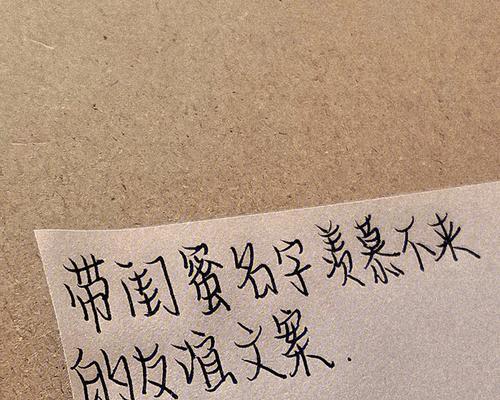 带闺蜜名字羡慕不来
的友谊文案.